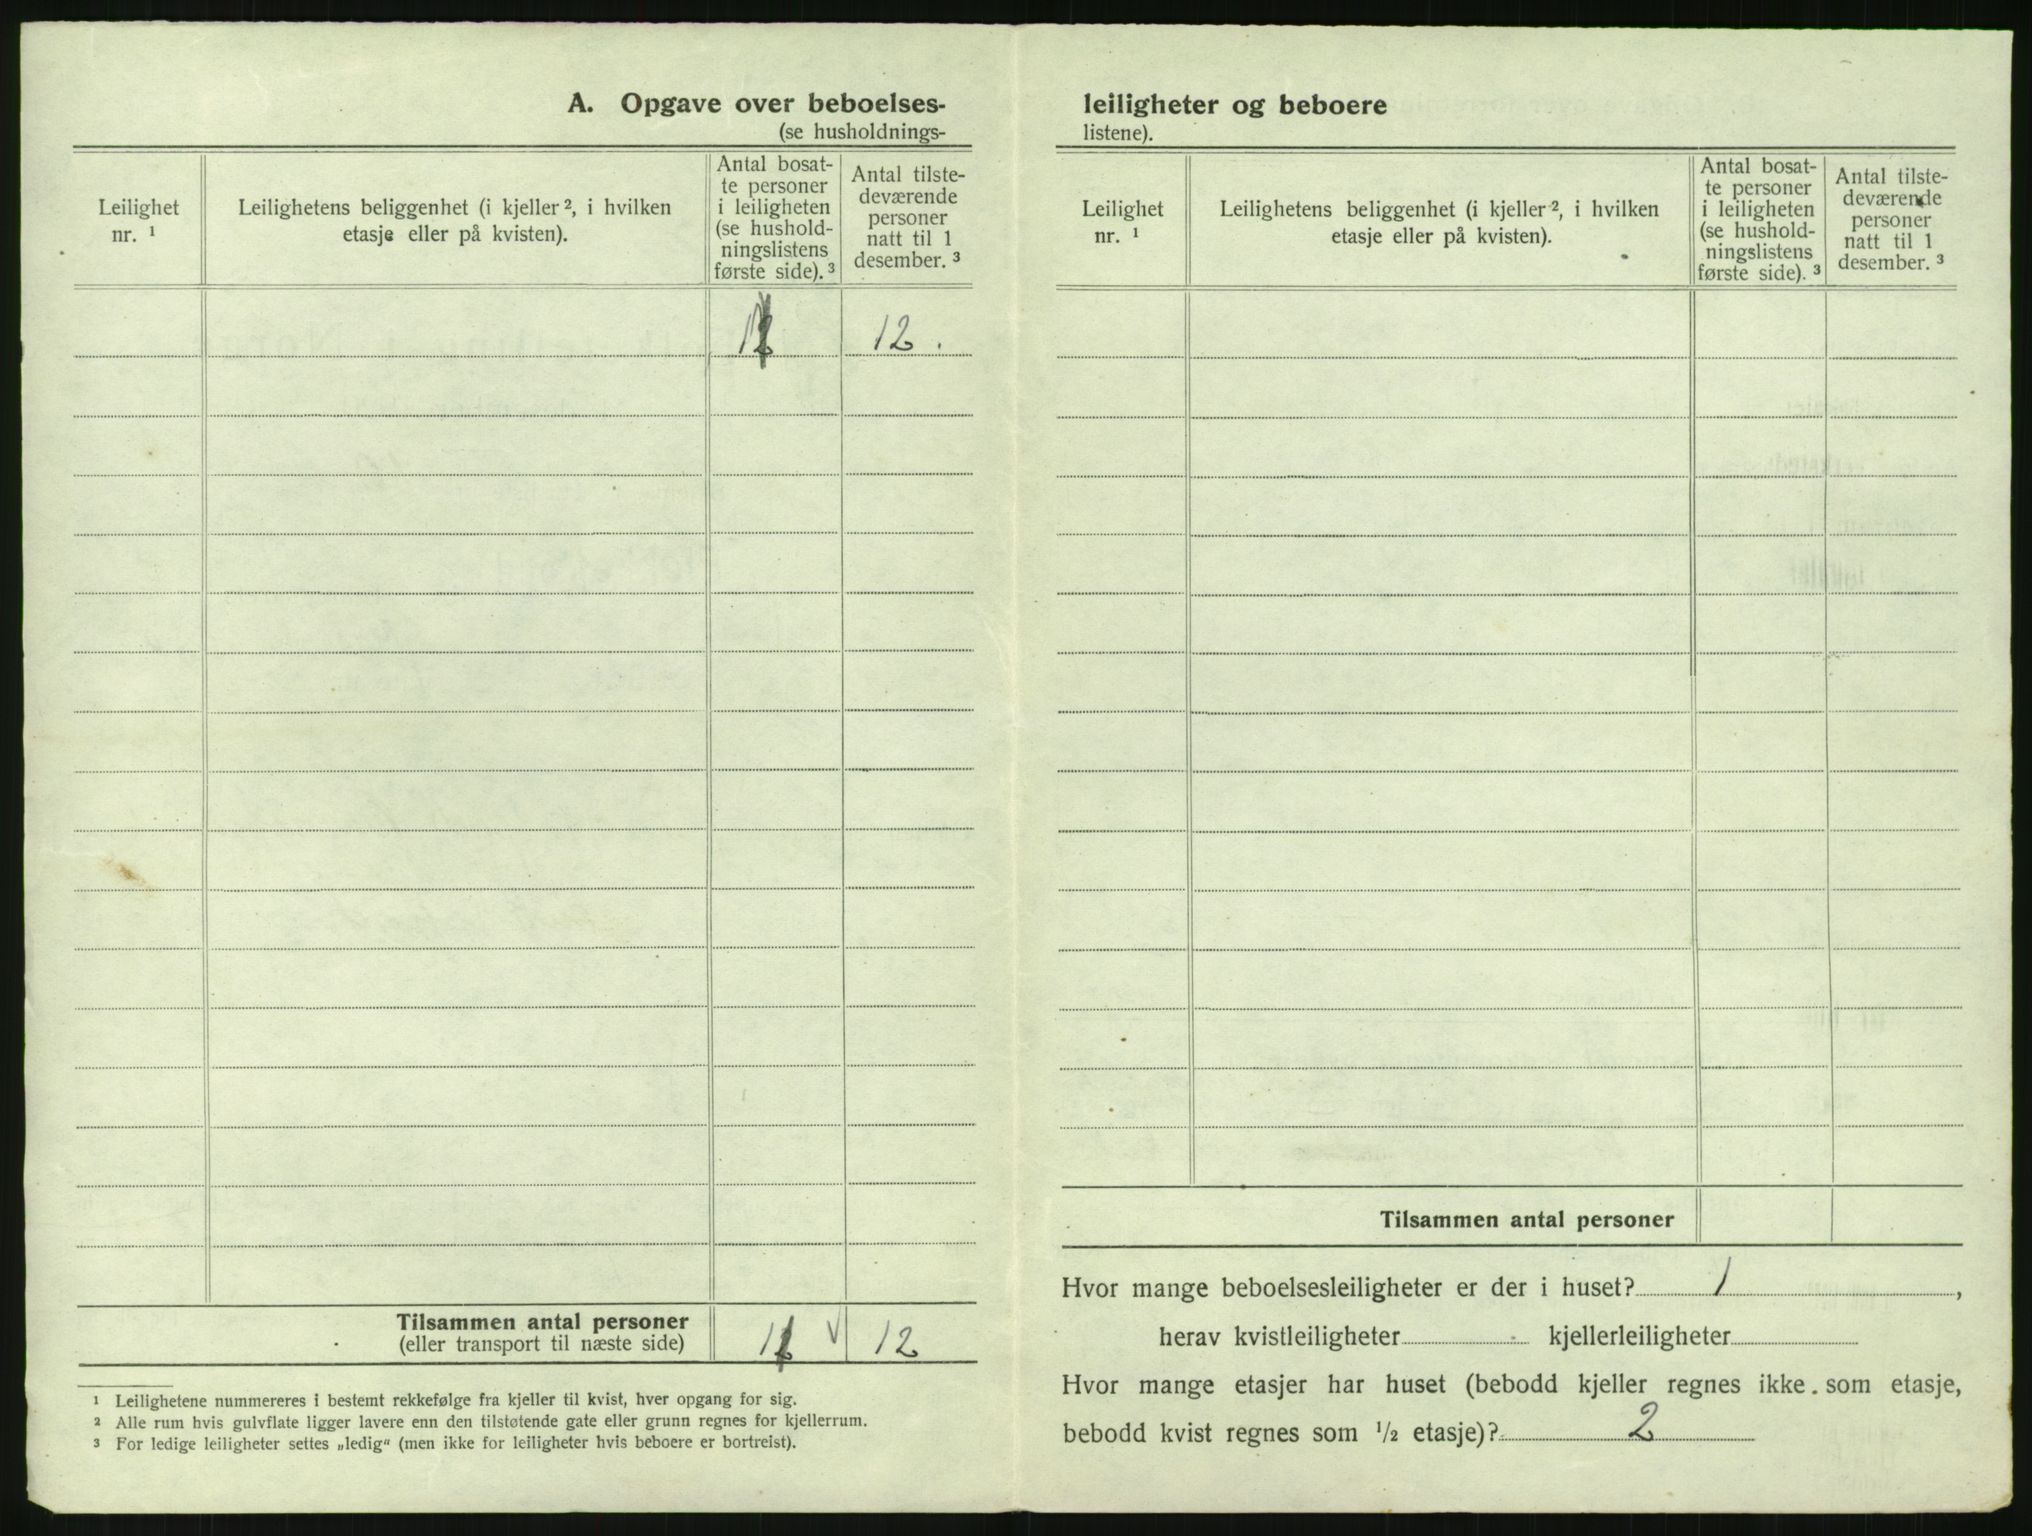 A. Opgave over beboelses-
(se husholdnings-
Leilighet
nr. ¹
Leilighetens beliggenhet (i kjeller ², i hvilken
etasje eller på kvisten).
Antal bosat-
te personer
i leiligheten
(se hushold-
ningslistens
første side). ³
Antal tilste-
deværende
personer
natt til 1
desember. ³
12.
Tilsammen antal personer
(eller transport til næste side)
12
¹ Leilighetene nummereres i bestemt rekkefølge fra kjeller til kvist, hver opgang for sig.
² Alle rum hvis gulvflate ligger lavere enn den tilstøtende gate eller grunn regnes for kjellerrum.
³ For ledige leiligheter settes „ledig“ (men ikke for leiligheter hvis beboere er bortreist).
leiligheter og beboere
listene).
Leilighet
nr. ¹
Leilighetens beliggenhet (i kjeller ², i hvilken
etasje eller på kvisten).
Antal bosat-
te personer
i leiligheten
(se hushold-
ningslistens
første side). ³
Antal tilste-
deværende
personer
natt til 1
desember. ³
Tilsammen antal personer
Hvor mange beboelsesleiligheter er der i huset? 1,
herav kvistleiligheter kjellerleiligheter
Hvor mange etasjer har huset (bebodd kjeller regnes ikke som etasje,
bebodd kvist regnes som ½ etasje)? 2